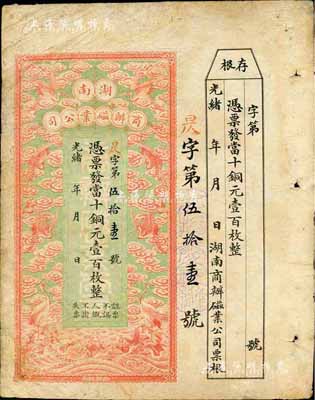 存根
字第　　號
憑票發當十銅元壹百枚整
光緒　年　月　日湖南商辦磁業公司票根
字第伍拾壹號
湖南
商辦磁業公司
字第伍拾壹號
憑票發當十銅元壹百枚整
光緒　年　月　日
認票
不認人
失票